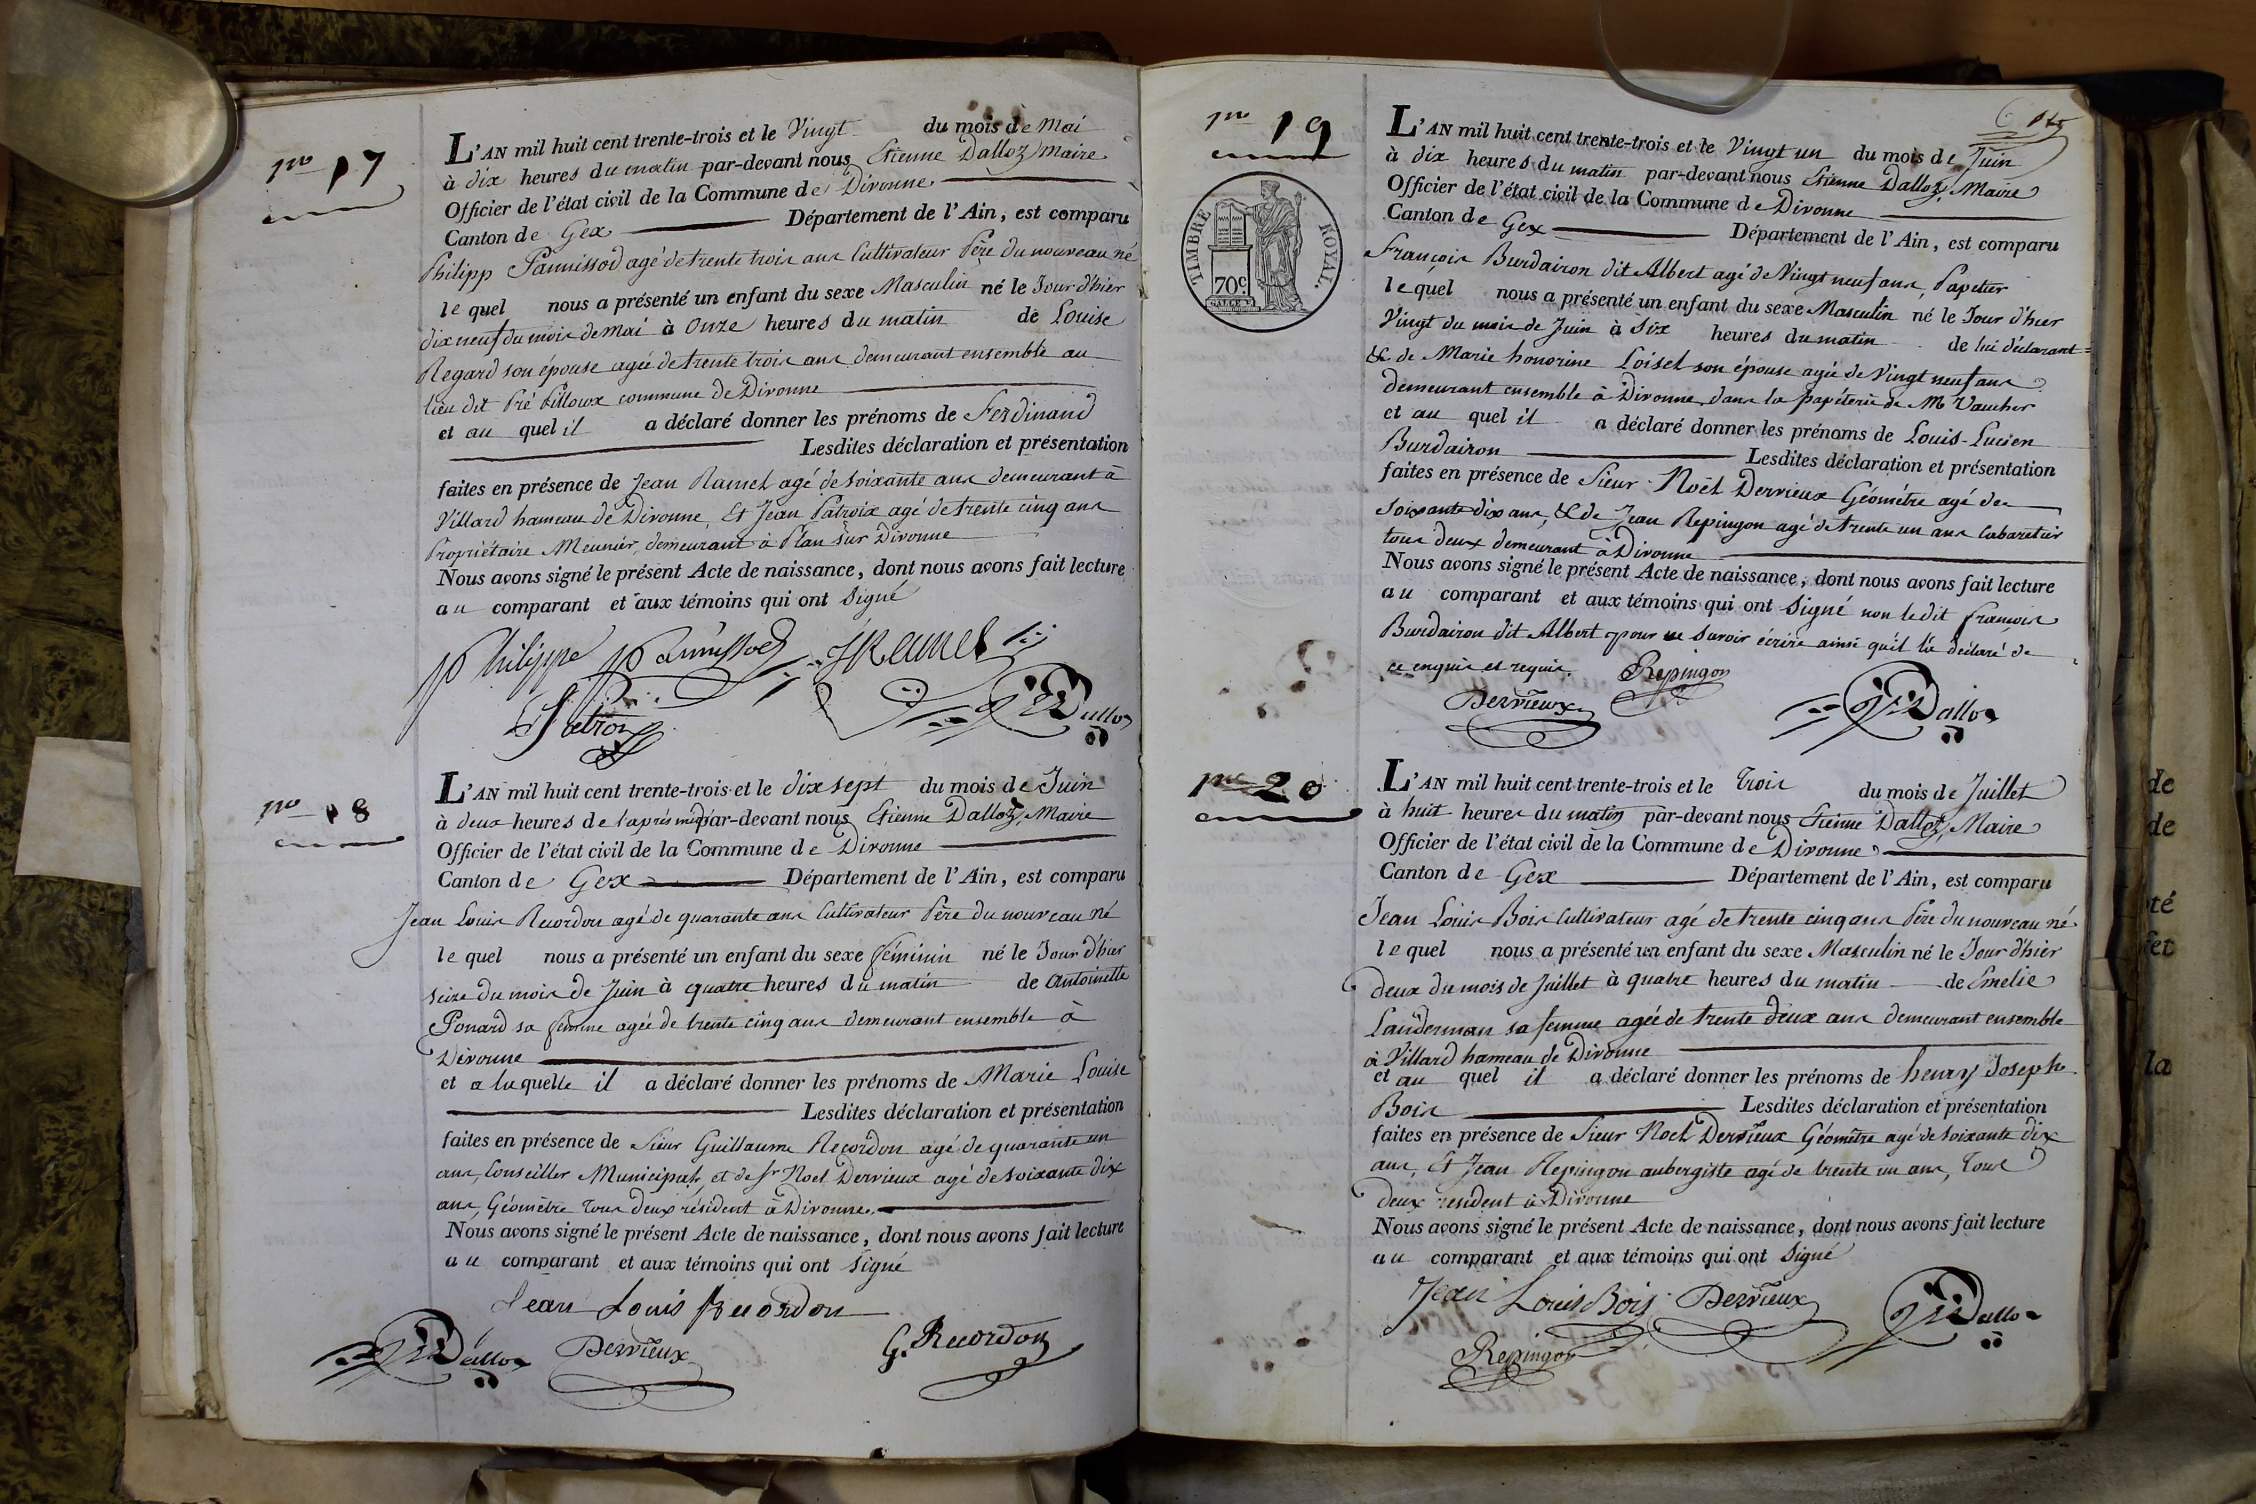 nº 17
L'AN mil huit cent trente-trois et le Vingt du mois de Mai
à dix heures du matin par-devant nous Etienne Dalloz Maire
Officier de l'état civil de la Commune de Divonne
Canton de Gex Département de l'Ain, est comparu
Philipp Pannissod agé de trente trois ans Cultivateur Père du nouveau né
le quel nous a présenté un enfant du sexe Masculin né le Jour d'hier
dix neuf du mois de Mai à Onze heures du matin de Louise
Regard son épouse agée de trente trois ans demeurant ensemble au
lieu dit Pré commune de Divonne
et au quel il a déclaré donner les prénoms de Ferdinand
Lesdites déclaration et présentation
faites en présence de Jean Ramel agé de soixante ans demeurant à
Villard hameau de Divonne, Et Jean Patroix agé de trente cinq ans
Propriétaire Meunier, demeurant à Plan sur Divonne
Nous avons signé le présent Acte de naissance, dont nous avons fait lecture
au comparant et aux témoins qui ont Signé
Philippe Pannissod JRamel
Dalloz
nº 18
L'AN mil huit cent trente-trois et le dix sept du mois de Juin
à deux heures de l'après midi par-devant nous Etienne Dalloz, Maire
Officier de l'état civil de la Commune de Divonne
Canton de Gex Département de l'Ain, est comparu
Jean Louis Recordon agé de quarante ans Cultivateur Père du nouveau né
le quel nous a présenté un enfant du sexe féminin né le Jour d'hier
seize du mois de Juin à quatre heures du matin de Antoinette
Ponard sa femme agée de trente cinq ans demeurant ensemble à
Divonne
et a laquelle il a déclaré donner les prénoms de Marie Louise
Lesdites déclaration et présentation
faites en présence de Sieur Guillaume Recordon agé de quarante un
ans, Conseiller Municipal, et de Sr Noel Dervieux agé de soixante dix
ans, Géomètre tous deux résident à Divonne.
Nous avons signé le présent Acte de naissance, dont nous avons fait lecture
au comparant et aux témoins qui ont Signé
Jean Louis Recordon
Dalloz Dervieux G. Recordon
nº 19
TIMBRE ROYAL.
70c
L'AN mil huit cent trente-trois et le Vingt un du mois de Juin
à dix heures du matin par-devant nous Etienne Dalloz, Maire
Officier de l'état civil de la Commune de Divonne
Canton de Gex Département de l'Ain, est comparu
François Burdairon dit Albert agé de Vingt neuf ans, Papetier
lequel nous a présenté un enfant du sexe Masculin né le Jour d'hier
Vingt du mois de Juin à Six heures du matin de lui déclarant
& de Marie honorine Loisel son épouse agée de Vingt neuf ans
demeurant ensemble à Divonne, dans la papéterie de Mr Vaucher
et au quel il a déclaré donner les prénoms de Louis-Lucien
Burdairon Lesdites déclaration et présentation
faites en présence de Sieur Noël Dervieux Géomètre agé de
Soixante dix ans, & de Jean Repingon agé de trente un ans Cabaretier
tous deux demeurant à Divonne
Nous avons signé le présent Acte de naissance, dont nous avons fait lecture
au comparant et aux témoins qui ont Signé non le dit François
Burdairon dit Albert pour ne savoir écrire ainsi qu'il l'a déclaré de
ce enquis et requis. Repingon
Dervieux Dalloz
nº 20
L'AN mil huit cent trente-trois et le Trois du mois de Juillet
à huit heures du matin par-devant nous Etienne Dalloz, Maire
Officier de l'état civil de la Commune de Divonne
Canton de Gex Département de l'Ain, est comparu
Jean Louis Bois Cultivateur agé de trente cinq ans Père du nouveau né
lequel nous a présenté un enfant du sexe Masculin né le Jour d'hier
deux du mois de Juillet à quatre heures du matin de Emelie
Lauderman sa femme agée de trente deux ans demeurant ensemble
à Villard hameau de Divonne
et au quel il a déclaré donner les prénoms de henry Joseph
Bois Lesdites déclaration et présentation
faites en présence de Sieur Noel Dervieux Géomètre agé de soixante dix
ans, Et Jean Repingon aubergiste agé de trente un ans, Tous
deux resident à Divonne
Nous avons signé le présent Acte de naissance, dont nous avons fait lecture
au comparant et aux témoins qui ont Signé
Jean Louis Bois Dervieux Dalloz
Repingon
de
de
la